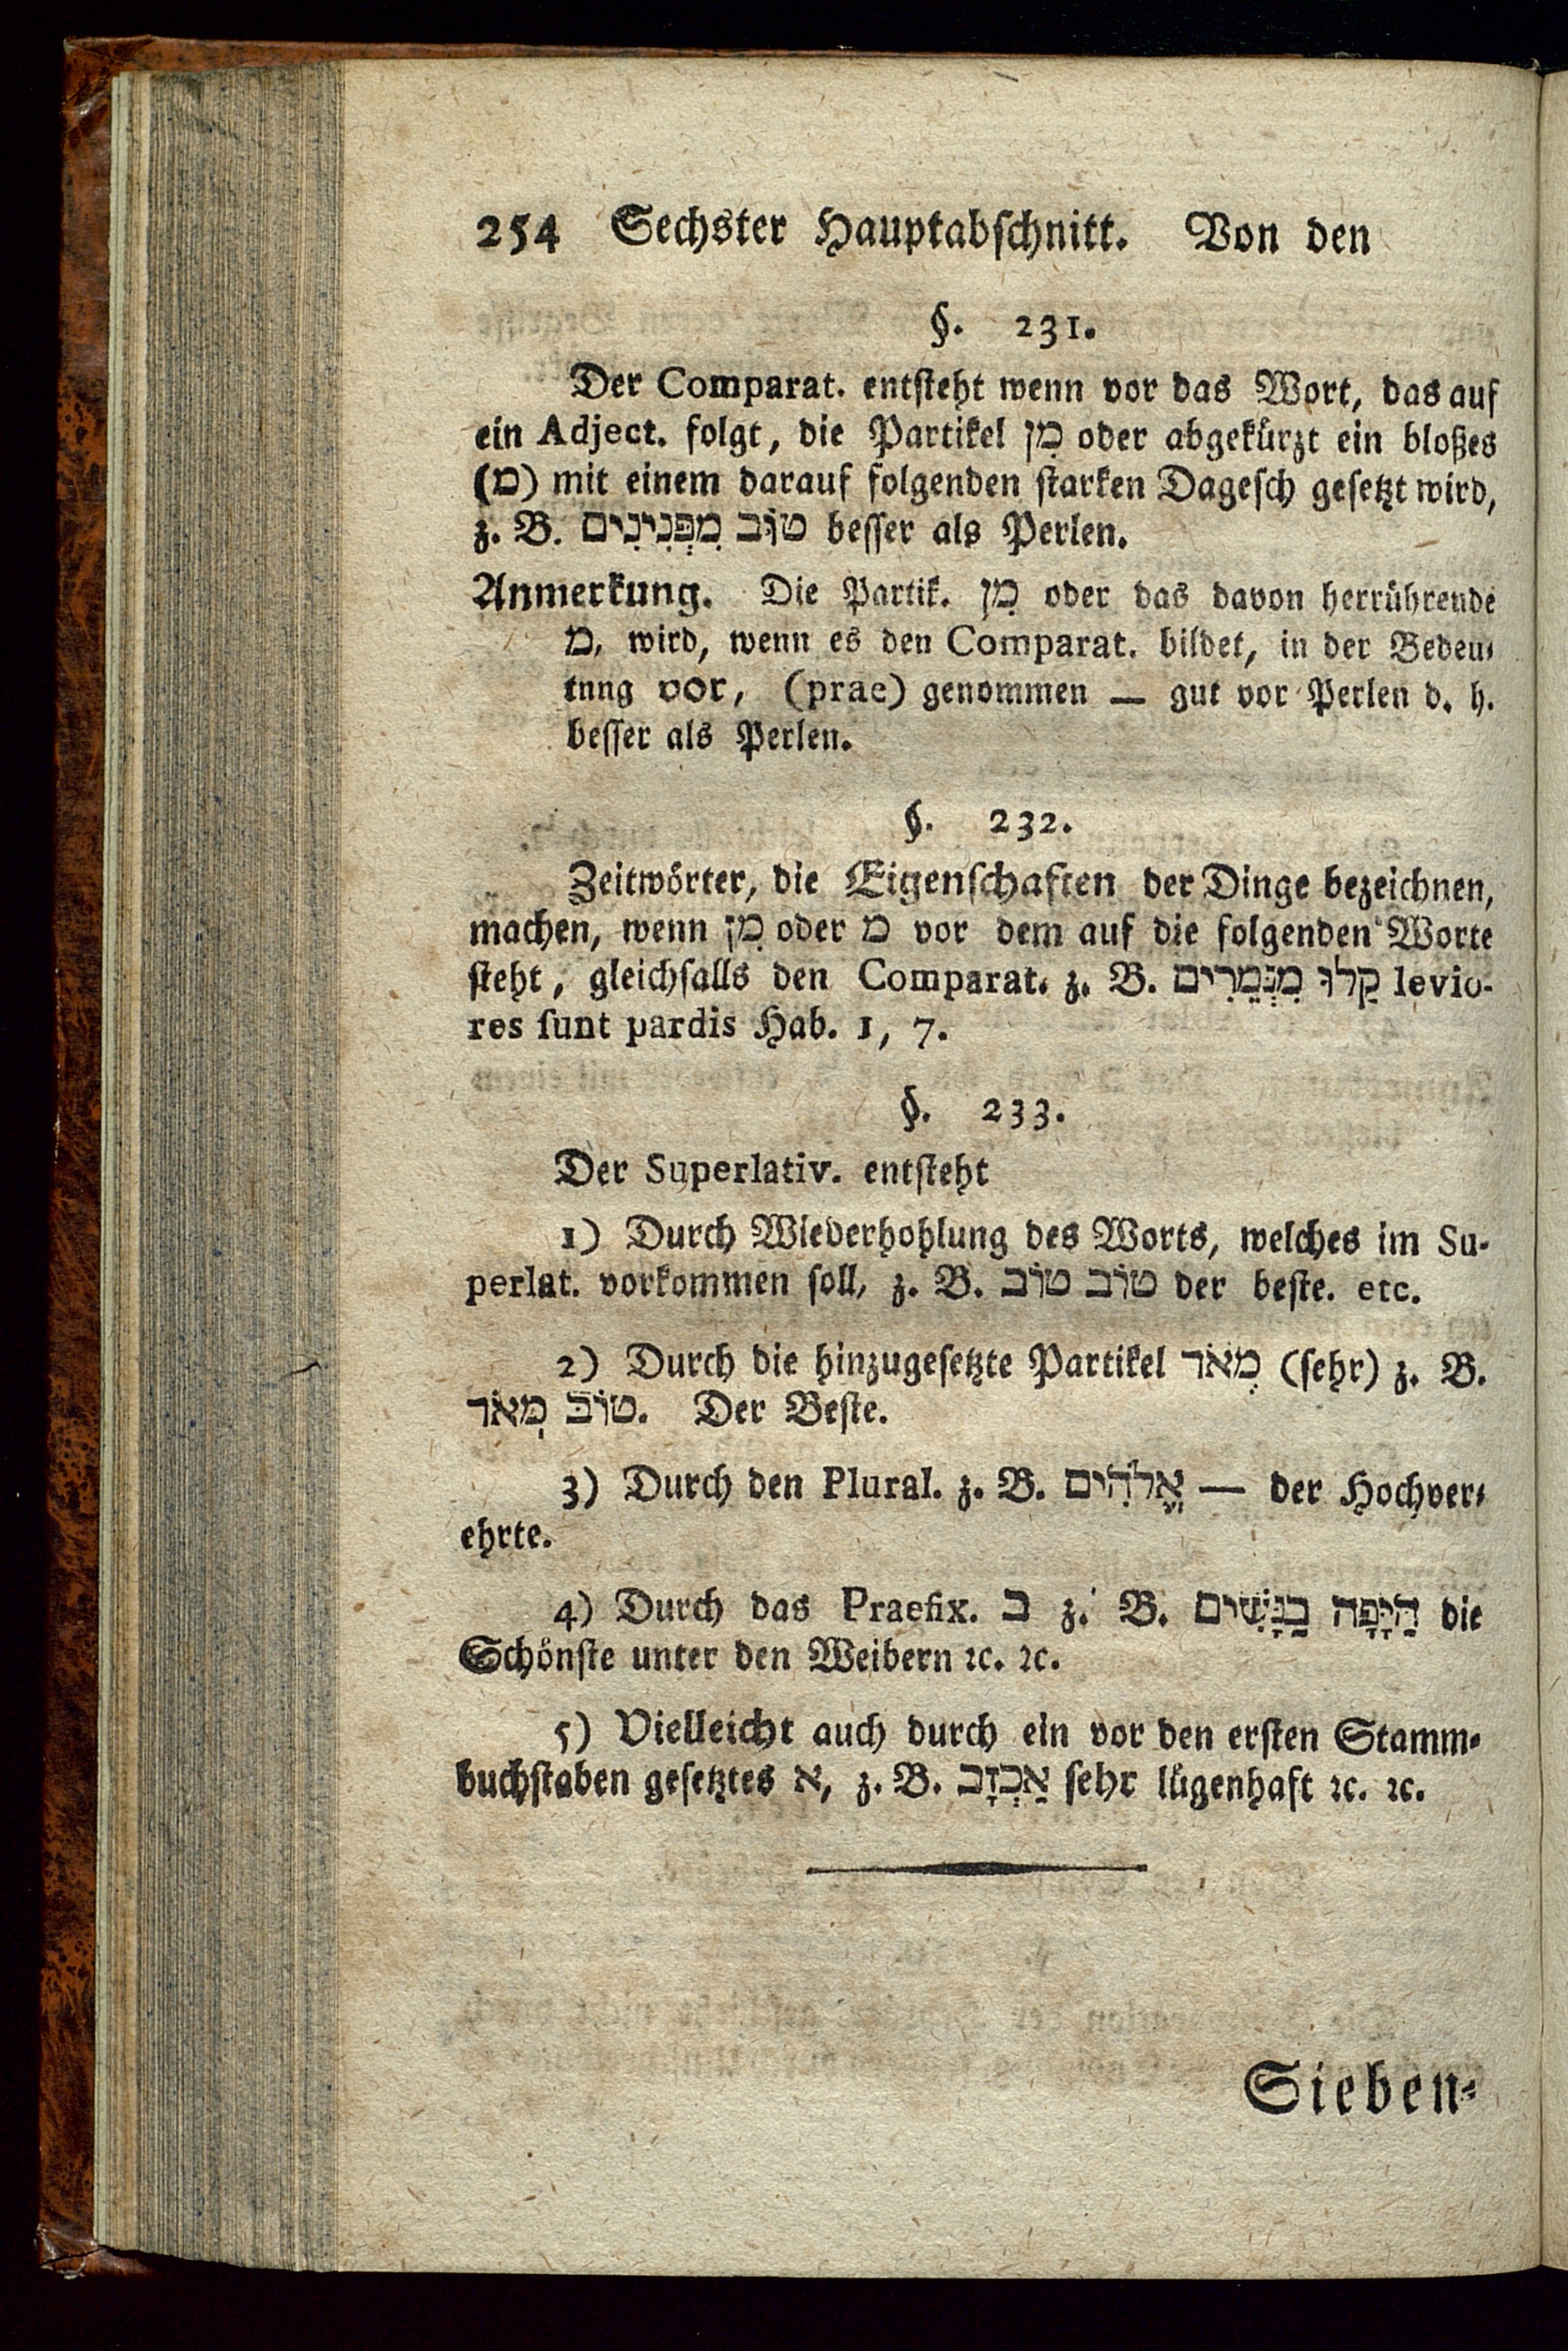 254 Sechster Hauptabschnitt. Von den
§. 231.
Der Comparat. entsteht wenn vor das Wort, das auf
ein Adject. folgt, die Partikel מִן oder abgekürzt ein bloßes
(מ) mit einem darauf folgenden starken Dagesch gesetzt wird,
z. B. טוֹב מִפְּנִינִים besser als Perlen.
Anmerkung. Die Partik. מִן oder das davon herrührende
מ, wird, wenn es den Comparat. bildet, in der Bedeu-
tnng vor, (prae) genommen — gut vor Perlen d. h.
besser als Perlen.
§. 232.
Zeitwörter, die Eigenschaften der Dinge bezeichnen,
machen, wenn מִן oder מ vor dem auf die folgenden Worte
steht, gleichfalls den Comparat. z. B. קַלוּ מִנְּמֵרִים levio-
res sunt pardis Hab. 1, 7.
§. 233.
Der Superlativ. entsteht
1) Durch Wiederhohlung des Worts, welches im Su-
perlat. vorkommen soll, z. B. טוֹב טוֹב der beste. etc.
2) Durch die hinzugesetzte Partikel מְאֹר (sehr) z. B.
טוֹב מְאֹר. Der Beste.
3) Durch den Plural. z. B. אֱלֹהִים — der Hochver-
ehrte.
4) Durch das Praefix. ב z. B. הַיָּפָה בַּנָּשִׁים die
Schönste unter den Weibern ꝛc. ꝛc.
5) Vielleicht auch durch ein vor den ersten Stamm-
buchstaben gesetztes א, z. B. אַכְזָב sehr lügenhaft ꝛc. ꝛc.
Sieben-